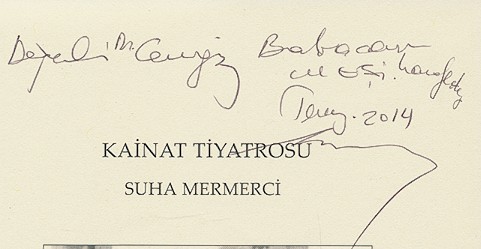 Değerli M. Cengiz Babacan
ve eşi hanıfedy
Tem. 2014
KAİNAT TİYATROSU
SUHA MERMERCİ